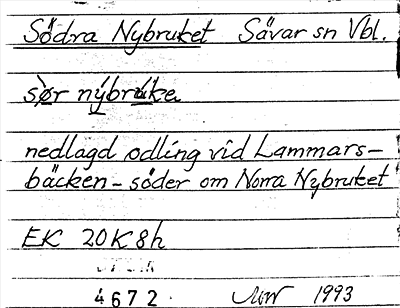 Södra Nybruket Sävar sn Vbl.
sø̀r nýbruka
nedlagd odling vid Lammars-
bäcken - söder om Norra Nybruket
EK 20K8h
4672. 1993